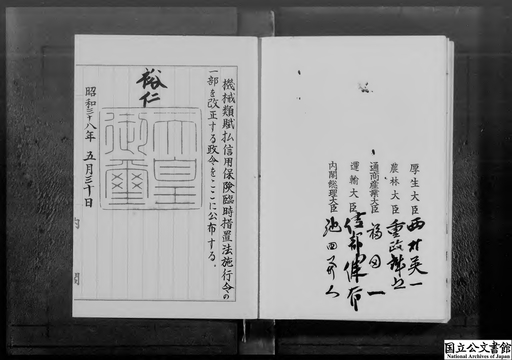 機械類賦払信用保険臨時措置法施行令の
一部を改正する政令をここに公布する。
裕仁
天皇
御璽
昭和三十八年 五月三十日
内閣
厚生大臣 西村英一
農林大臣 重政誠之
通商産業大臣 福田一
運輸大臣 綾部健太郎
内閣総理大臣 池田勇人
国立公文書館
National Archives of Japan